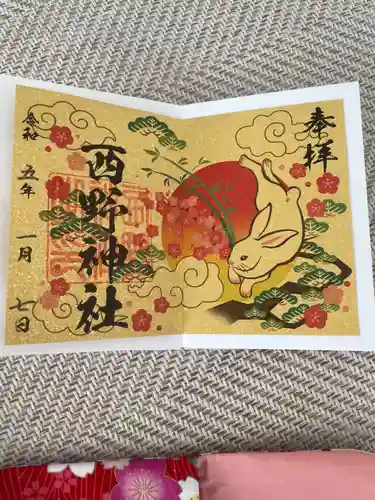 奉拝
西野神社
令和
五年
一月
七日